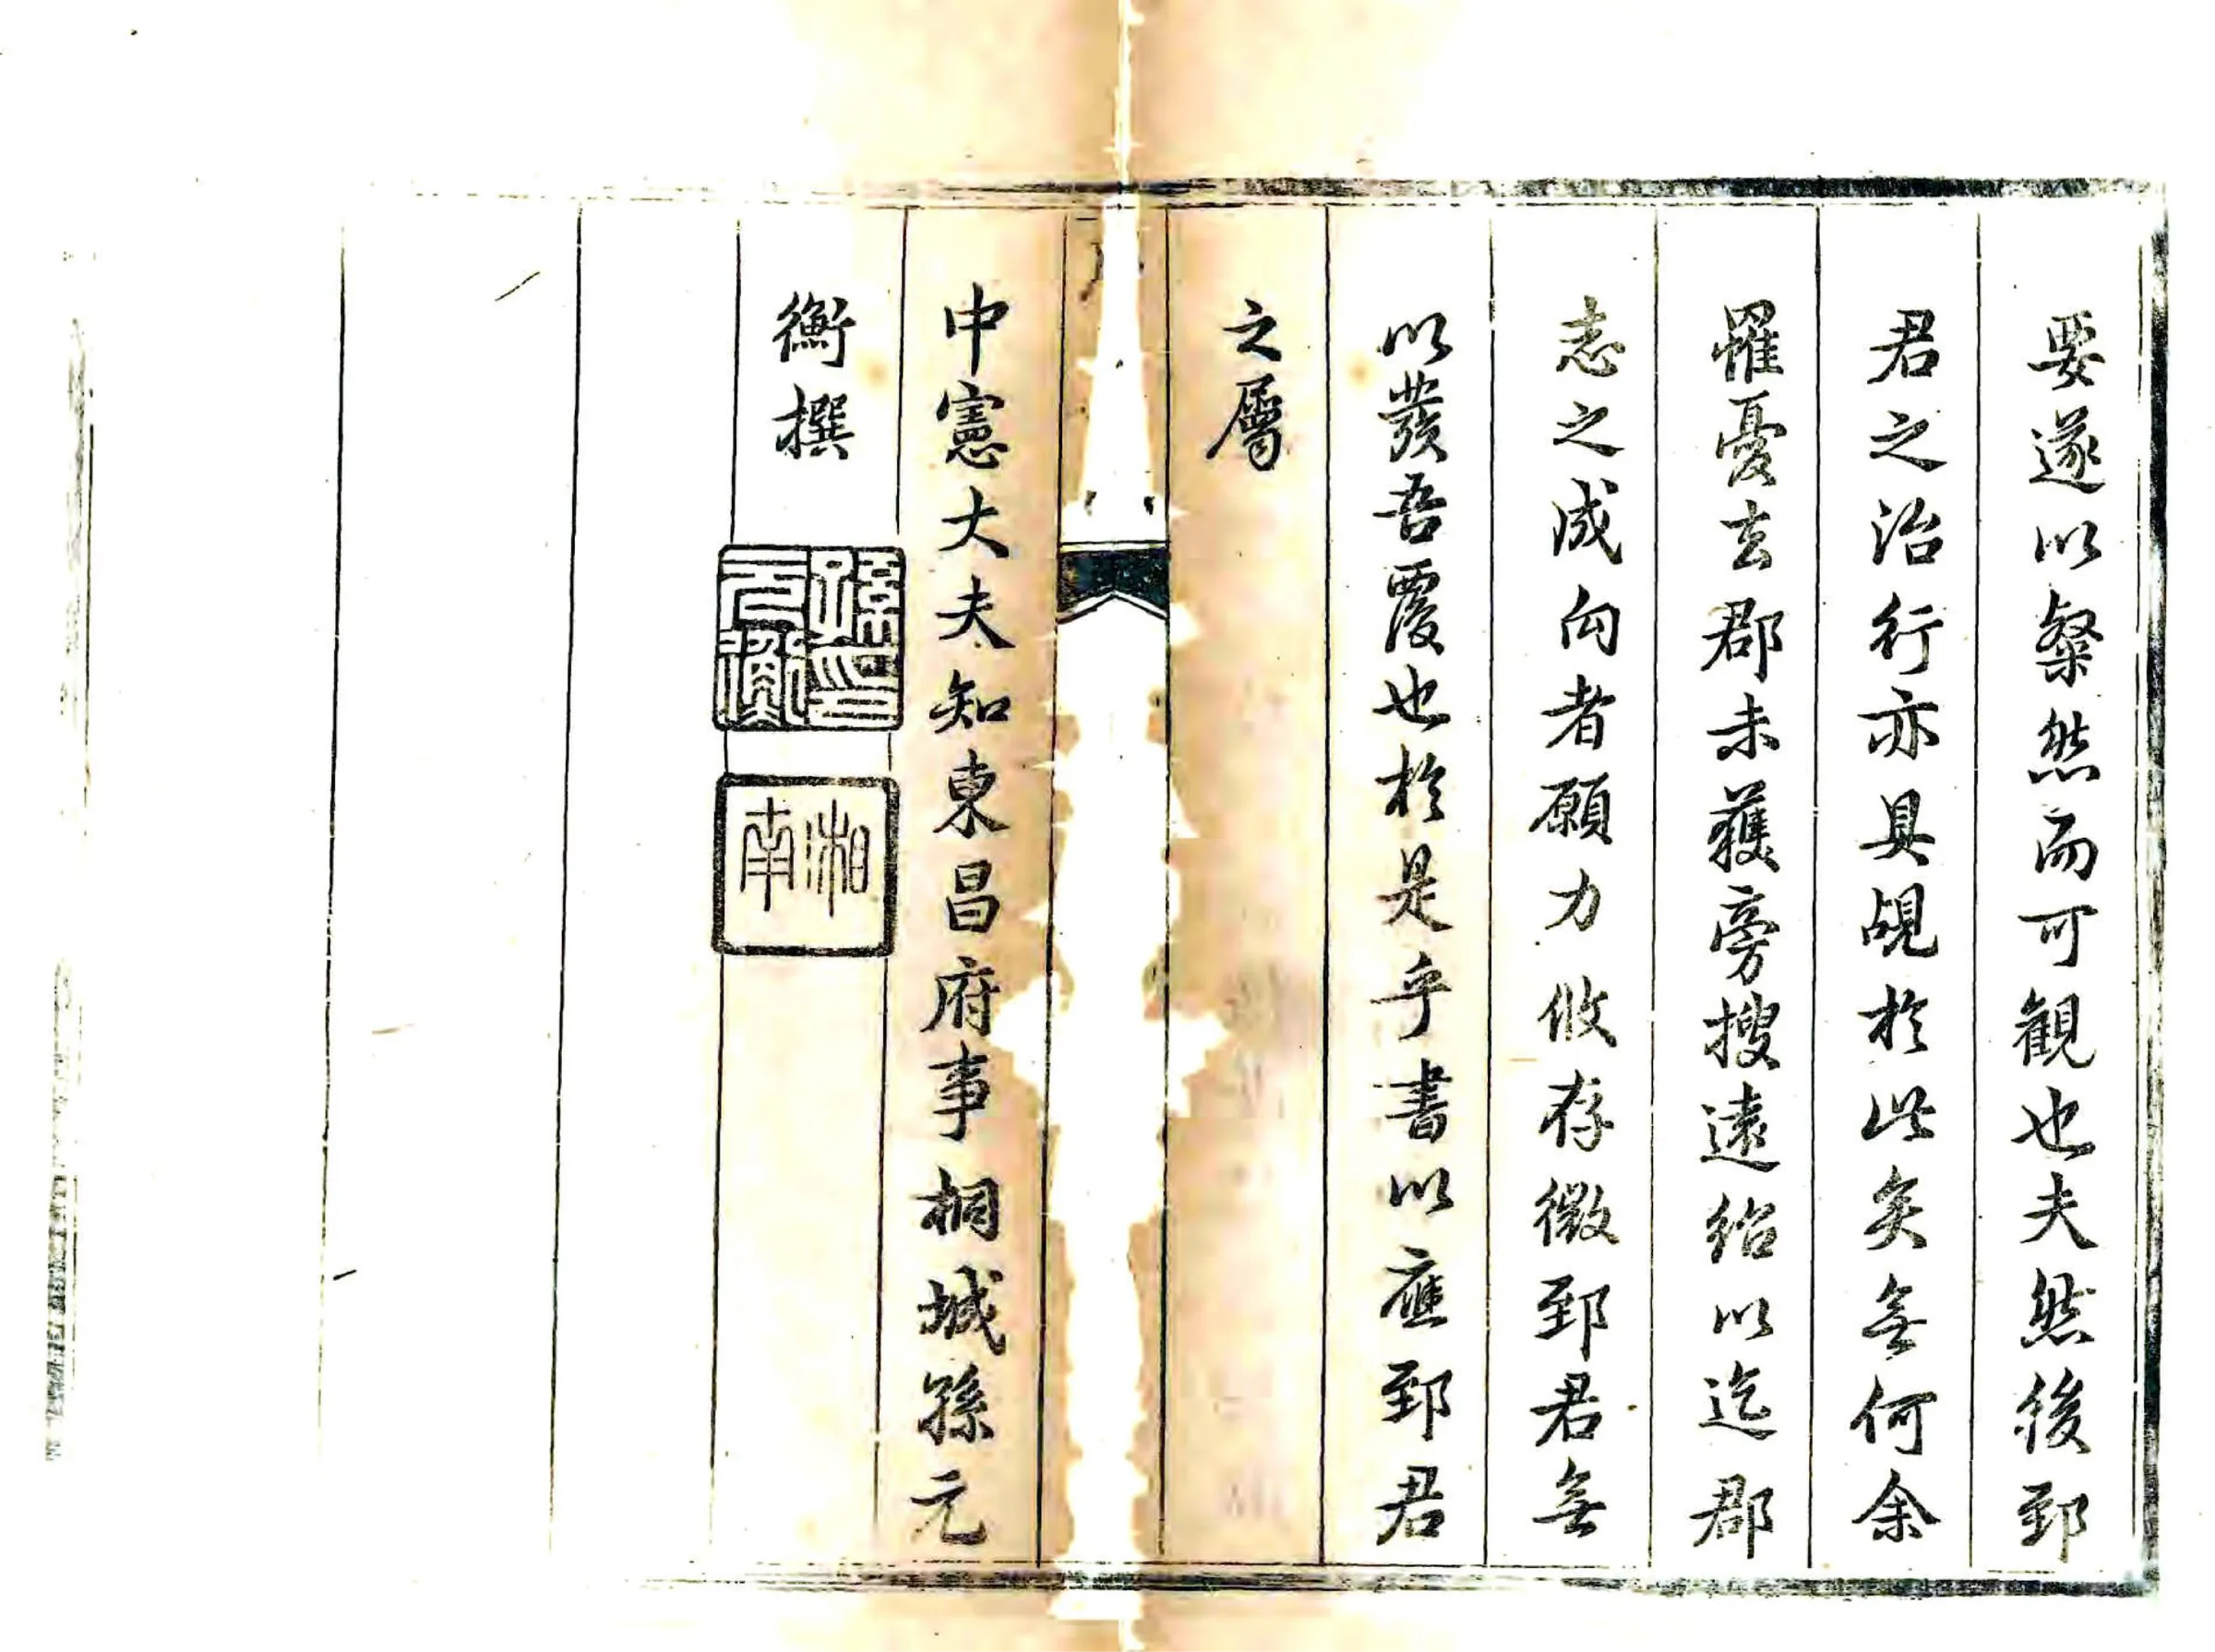 要遂以粲然而可觀也夫然後郅
君之治行亦具覘於此矣無何余
罹憂去郡未獲旁搜遠紹以迄郡
志之成向者願力攸存微郅君無
以發吾覆也於是乎書以應郅君
之屬
中憲大夫知東昌府事桐城孫元
衡撰
孫元衡印
湘南